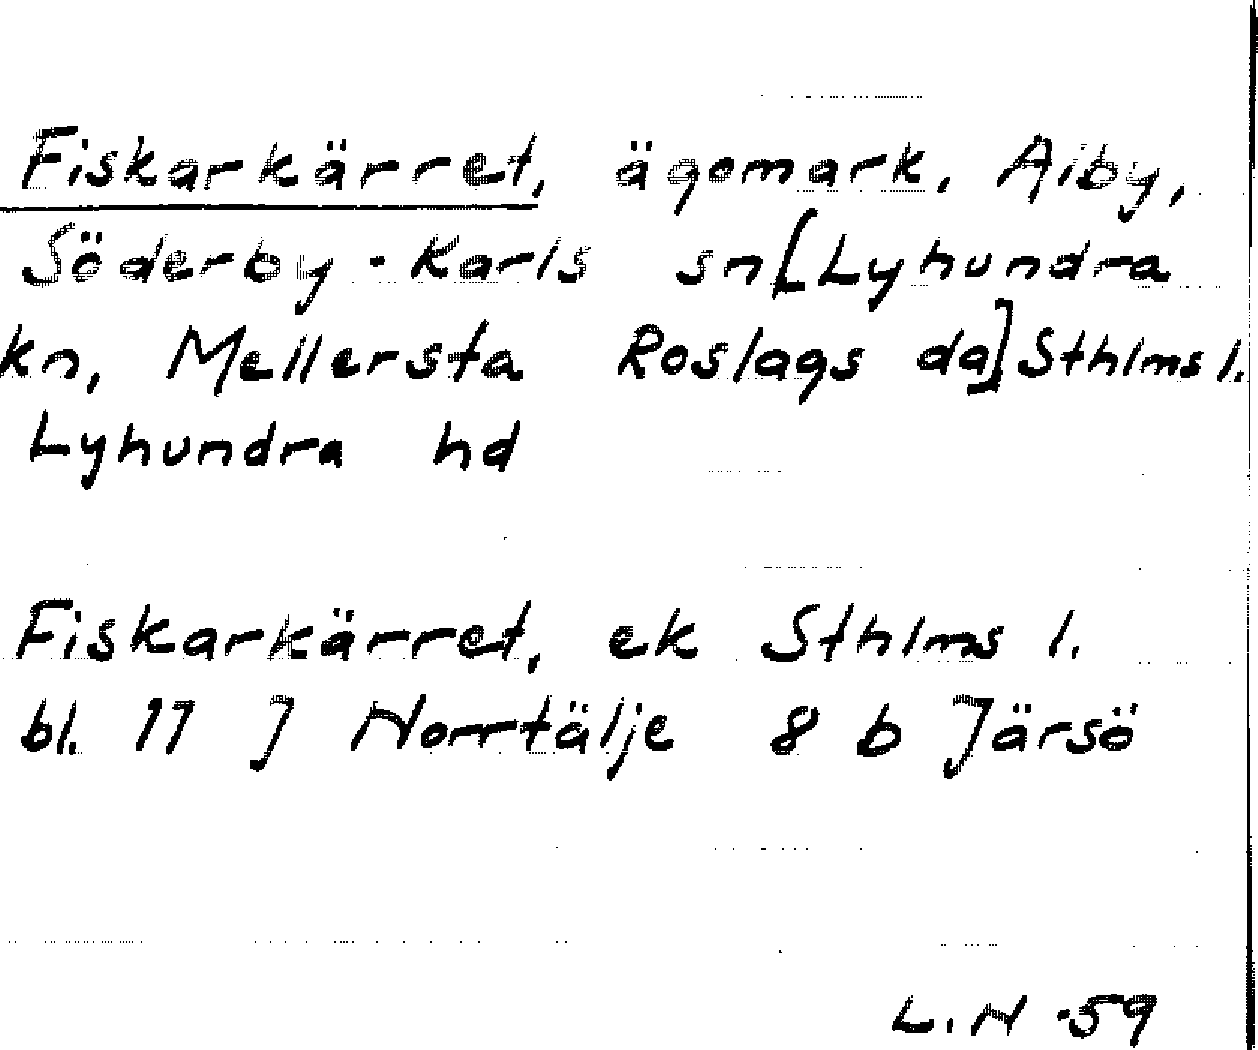 Fiskarkärret, ägomark, Aiby,
Söderby-Karls sn [Lyhundra
kn, Mellersta Roslags da] Sthlms l.
Lyhundra hd
Fiskarkärret, ek Sthlms l.
bl. 11 J Norrtälje 8 b Järsö
L.N -59